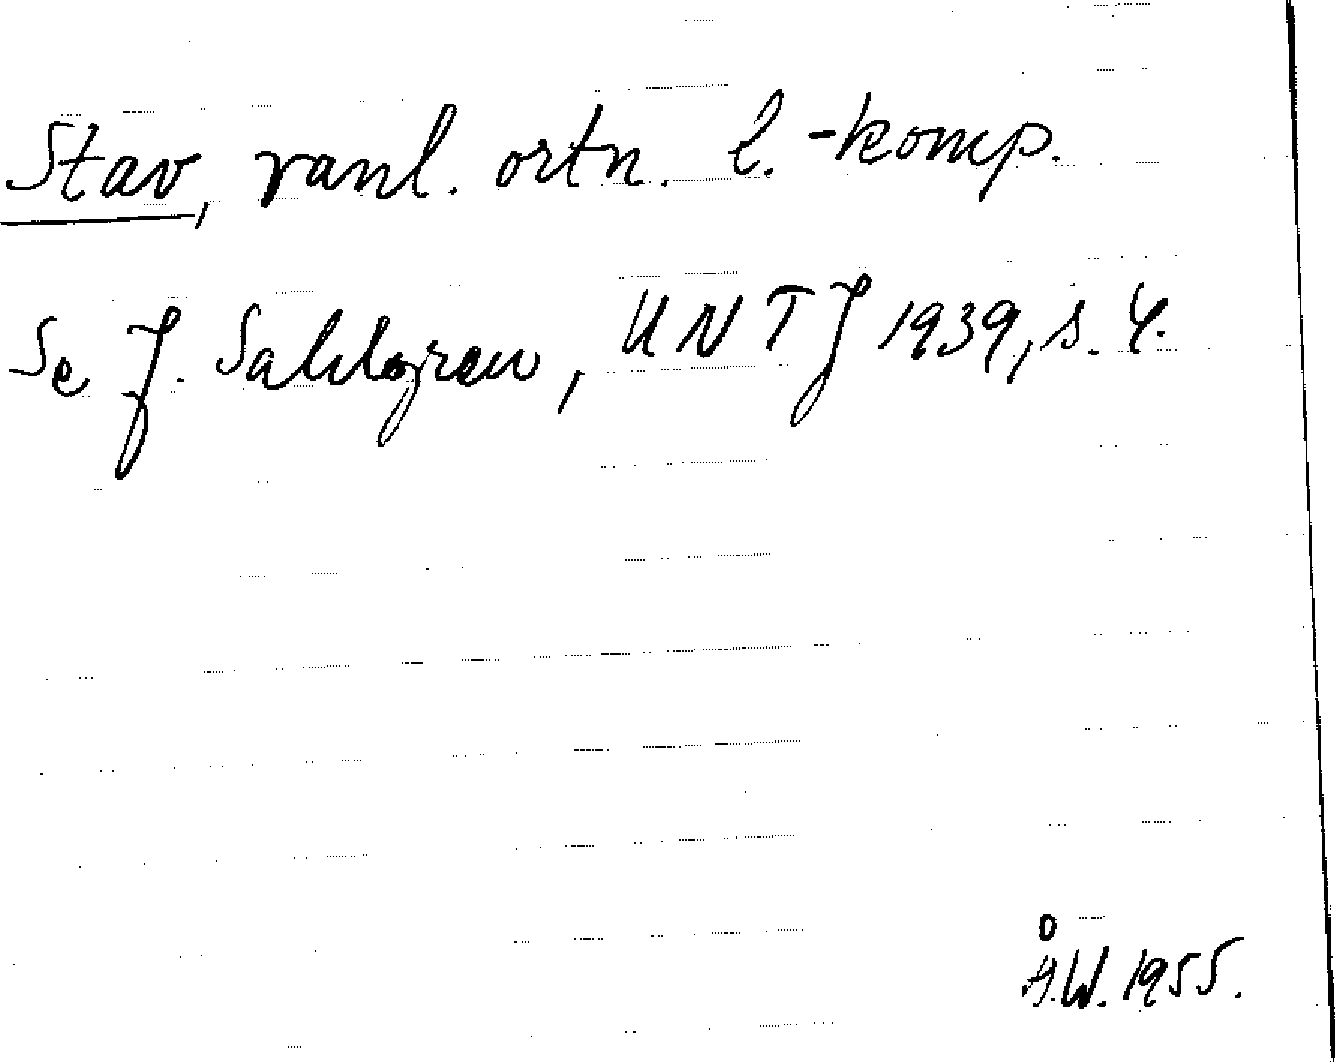 Stav, vanl. ortn. l. -komp.
Se J. Sahlgren, UNTJ 1939, s. 4.
Å.W. 1955.